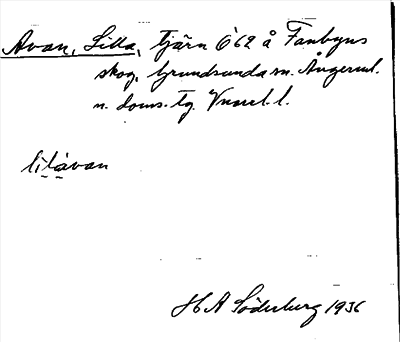 Avan, Lilla, tjärn Ö 62 å Fanbyns
skog, Grundsunda sn. Ångerml.
n. doms. tg. Vnorrl. l.
lilavan
H A Söderberg 1936